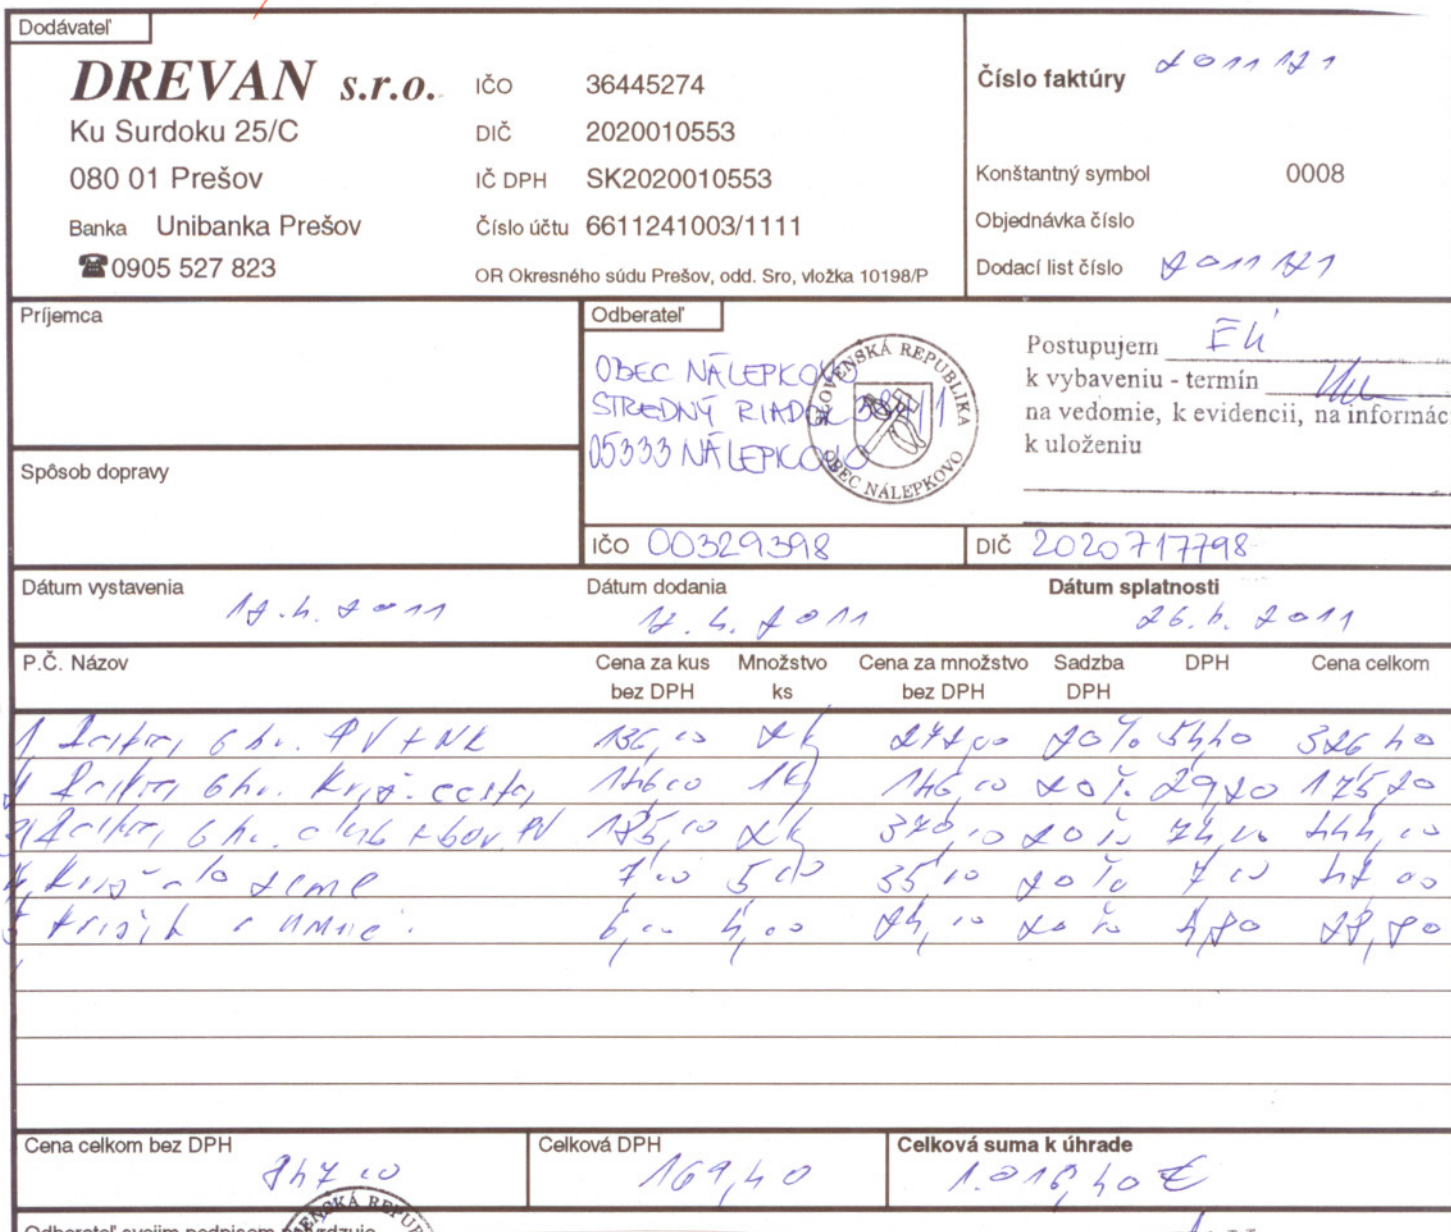 Dodávateľ
DREVAN s.r.o.
Ku Surdoku 25/C
080 01 Prešov
Banka Unibanka Prešov
☎0905 527 823
IČO 36445274
DIČ 2020010553
IČ DPH SK2020010553
Číslo účtu 6611241003/1111
OR Okresného súdu Prešov, odd. Sro, vložka 10198/P
Číslo faktúry 2011121
Konštantný symbol 0008
Objednávka číslo
Dodací list číslo 2011121
Príjemca
Spôsob dopravy
Odberateľ
OBEC NÁLEPKOVO
STREDNÝ RIADOK 384/1
05333 NÁLEPKOVO
SLOVENSKÁ REPUBLIKA
OBEC NÁLEPKOVO
Postupujem
k vybaveniu - termín
na vedomie, k evidencii, na informác
k uloženiu
IČO 00329398
DIČ 2020717798
Dátum vystavenia 12.4.2011
Dátum dodania 12.4.2011
Dátum splatnosti 26.4.2011
P.Č. Názov Cena za kus bez DPH Množstvo ks Cena za množstvo bez DPH Sadzba DPH DPH Cena celkom
1, 6 hr. PV + NK 136,00 2k 272,00 20% 54,40 326,40
6 hr. Kríž. cesta 146,00 1k 146,00 20% 29,20 175,20
6 hr. PV 185,00 2k 370,00 20% 74,00 444,00
4, Kríž do zeme 7,00 5,00 35,00 20% 7,00 42,00
6,00 4,00 24,00 20% 4,80 28,80
Cena celkom bez DPH 847,00
Celková DPH 169,40
Celková suma k úhrade 1.016,40 €